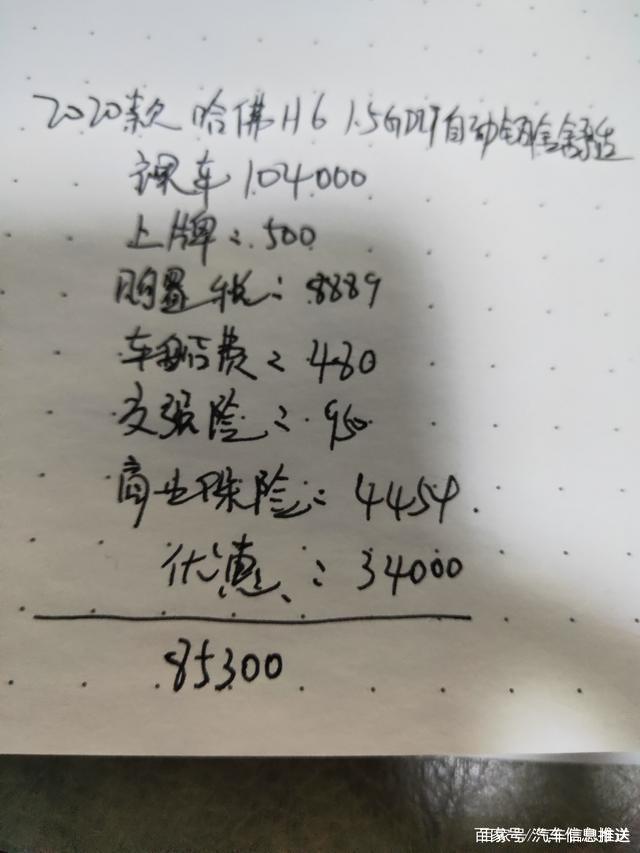 2020款 哈佛H6 1.5GDIT自动铂金舒适
裸车 104000
上牌:500
购置税:8889
车船费:480
交强险:950
商业保险:4454
优惠:34000
85300
百家号/汽车信息推送